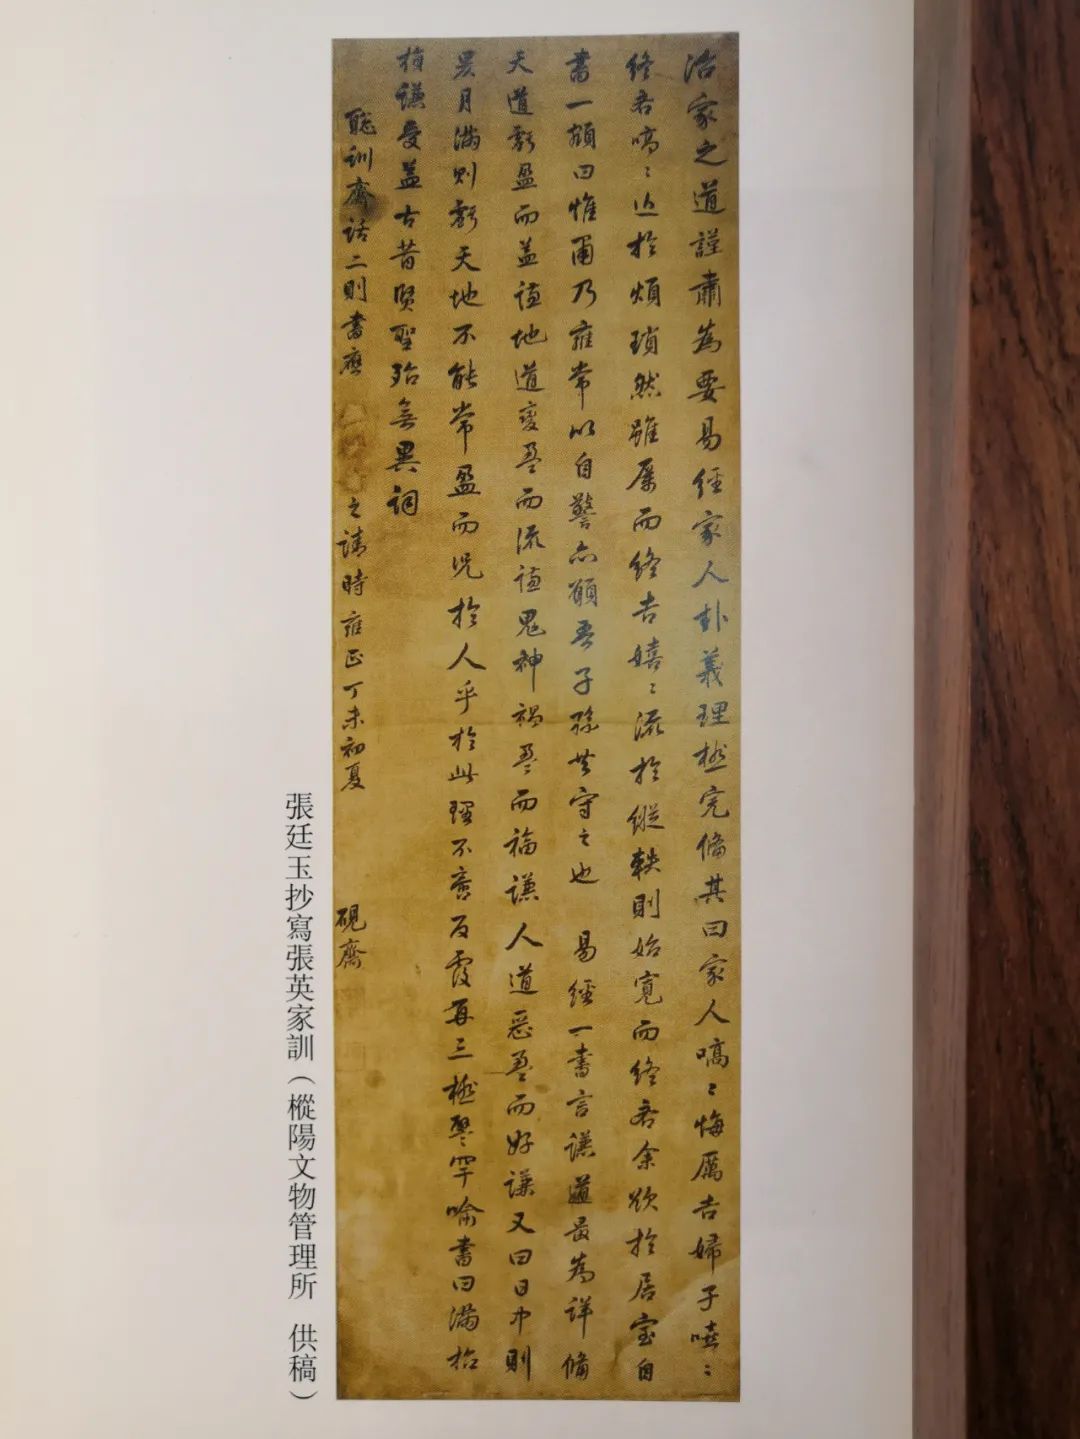 治家之道謹肅為要易經家人卦義理極完備其曰家人嗃〻悔厲吉婦子嘻〻
終吝嗃〻近於煩瑣然雖厲而終吉嘻〻流於縱軼則始寬而終吝余欲於居室自
書一額曰惟肅乃雍常以自警亦願吾子孫共守之也 易經一書言謙道最為詳備
天道虧盈而益謙地道變盈而流謙鬼神禍盈而福謙人道惡盈而好謙又曰日中則
昃月滿則虧天地不能常盈而況於人乎於此理不啻反覆再三極譬罕喻書曰滿招
損謙受益古昔賢聖殆無異詞
聰訓齋語二則書應
之請時雍正丁未初夏
硯齋
張廷玉抄寫張英家訓（樅陽文物管理所 供稿）